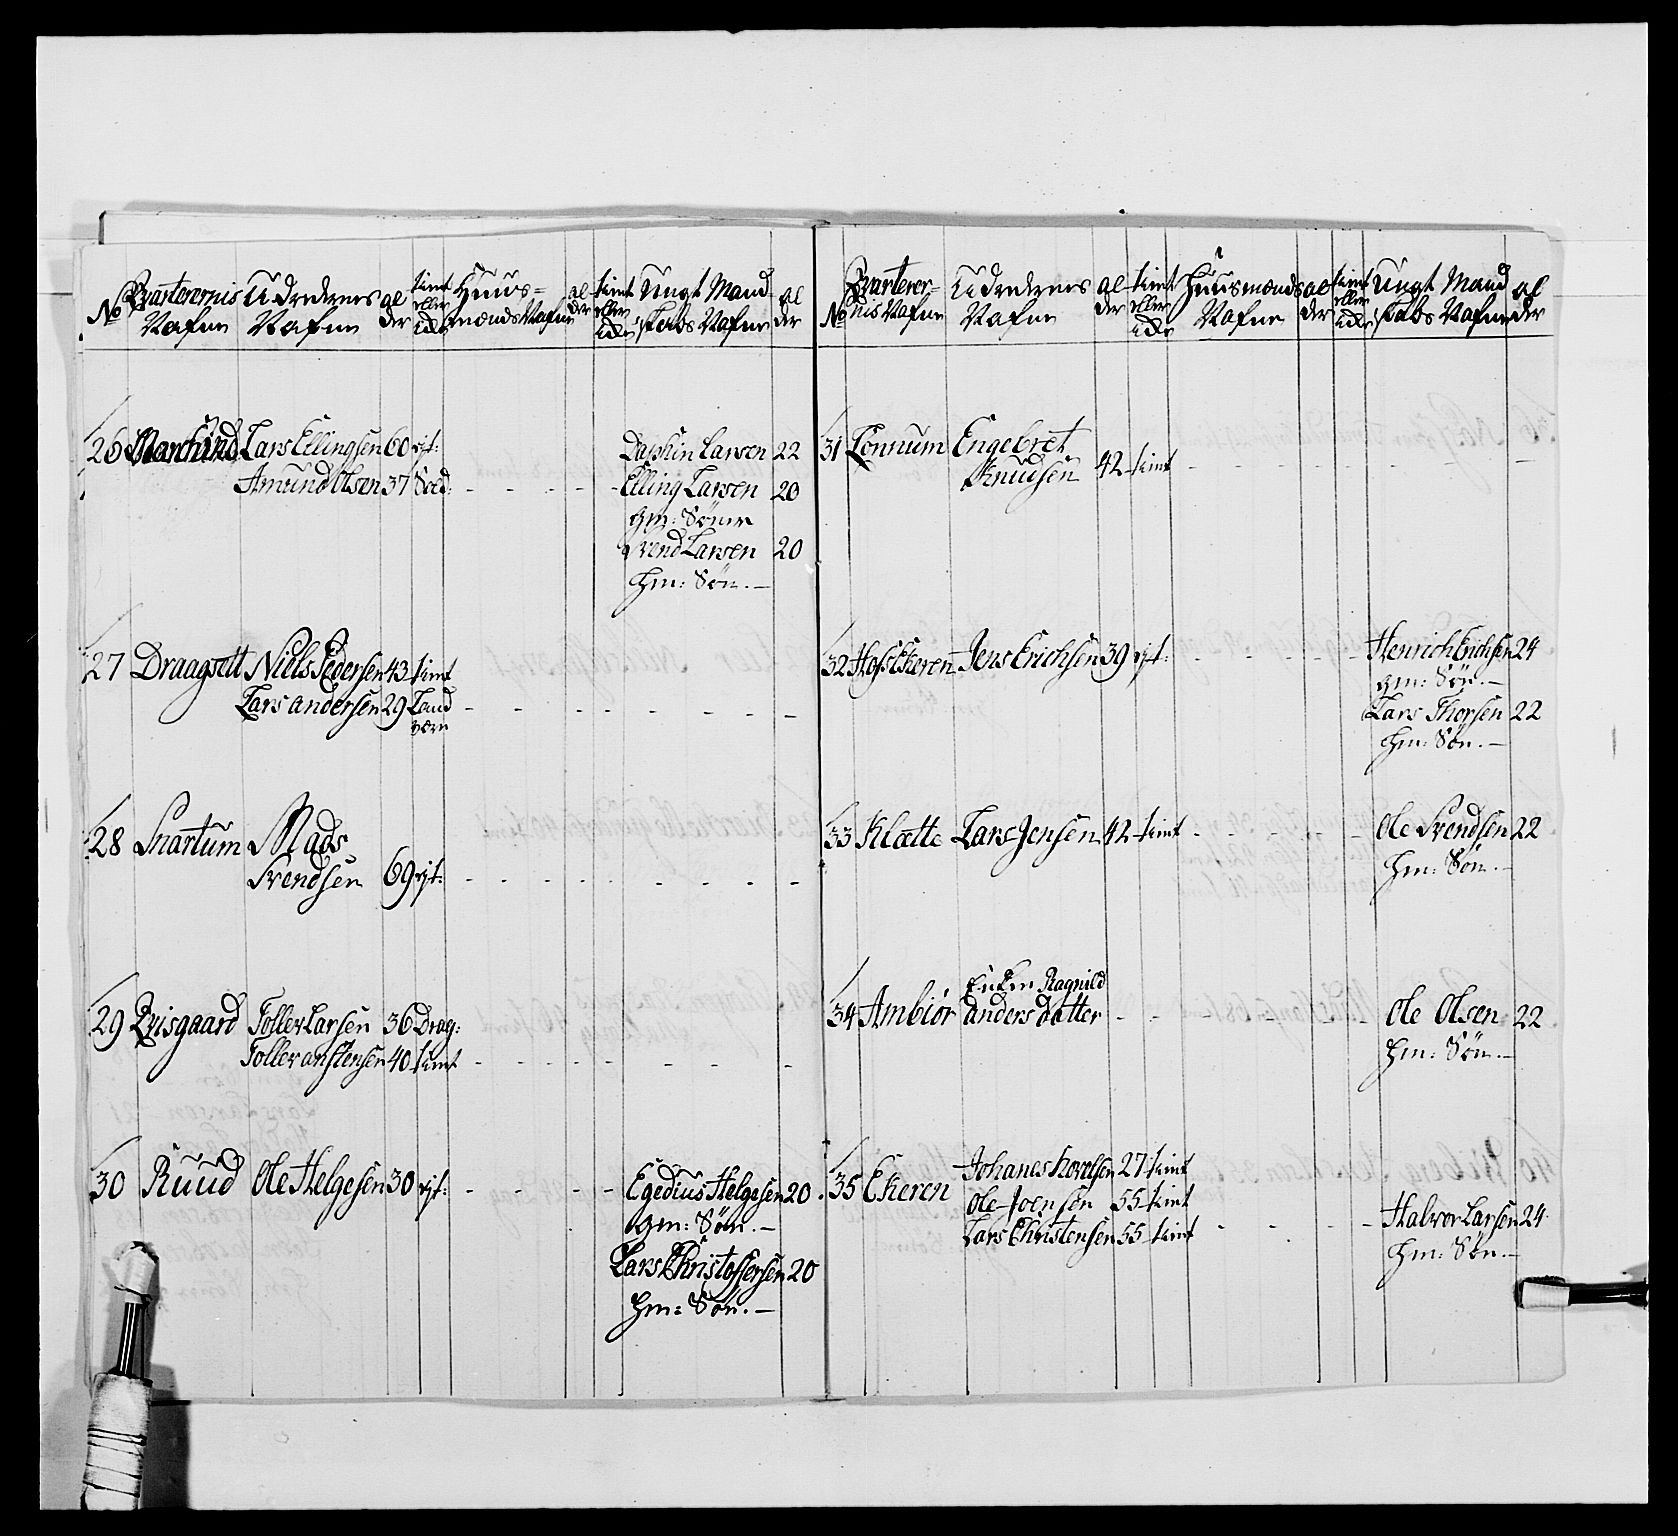 No Qvarterernis Nafne Udrederens Nafne al der tient eller icke Huus= mænds Nafne al der tient eller icke Ungt Mand skabs Nafne al der
26 Lars Ellingsen 60 ryt: Larsen 22
Amund Olsen 37 Sold: Elling Larsen 20
gm: Sönner
Svend Larsen 20
Hm: Sön. —
27 Draagsett Niels Pedersen 43 tient
Lars andersen 29 Land værn
28 Snartum Mads
Svendsen 69 ryt:
29 Qvisgaard Toller Larsen 36 Drag:
Toller 40 tient
30 Ruud Ole Helgesen 30 ryt: Egedius Helgesen 20
gm: Sön. —
Lars Christoffersen 20
Hm: Sön. —
No Qvarterer= nis Nafne Udrederens Nafne al der tient eller icke Huusmænds Nafne al der tient eller icke Ungt Mand skabs Nafne al der
31 Lonnum Engebret
Knudsen 42 tient
32 Jens Erichsen 39 ryt: Henrich Erichsen 24
gm: Sön. —
Lars Thorsen 22
Hm: Sön. —
33 Klætte Lars Jensen 42 tient Ole Svendsen 22
Hm: Sön. —
34 Ambiör Enken Ragnild
anders datter Ole Olsen 22
Hm: Sön. —
35 Ekeren Johanes 27 tient
Ole Joensen 55 tient
Lars Christensen 55 tient Halvor Larsen 24
Hm: Sön —